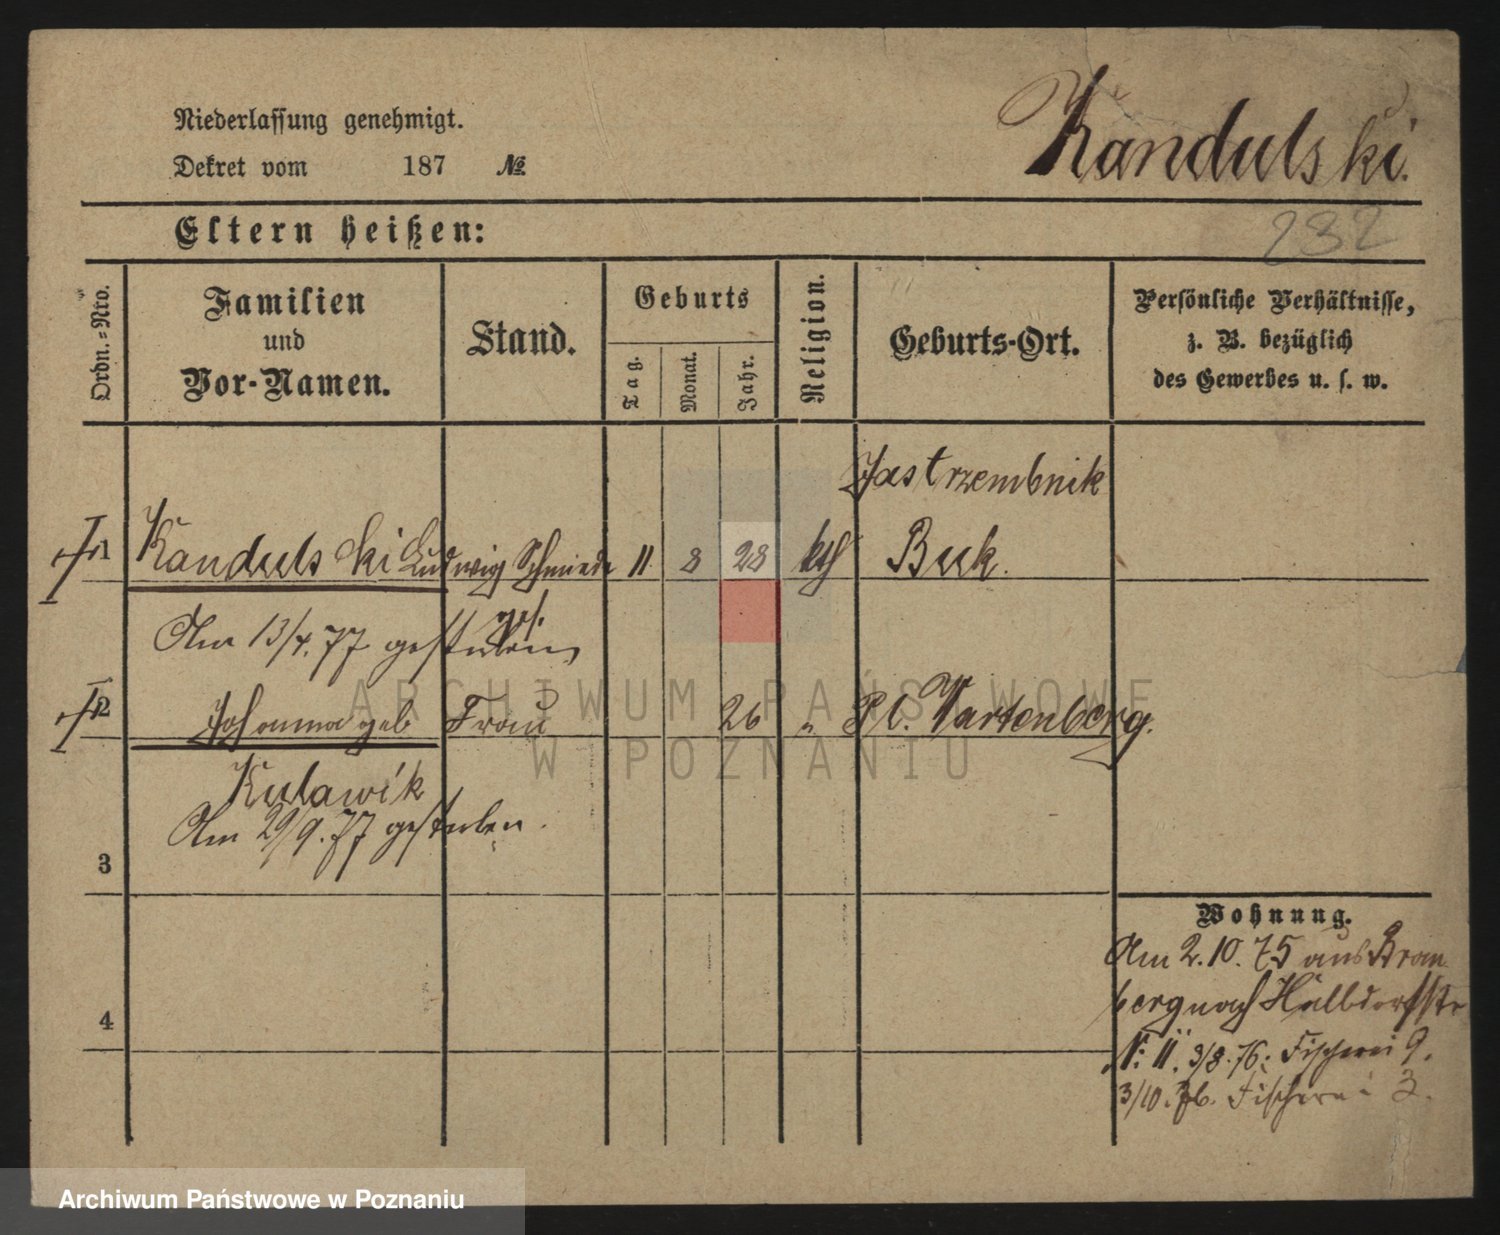 Niederlassung genehmigt.
Dekret vom 187 №
Kandulski.
232
Eltern heißen:
Ordn.=Nro.
Familien
und
Vor-Namen.
Stand.
Geburts
Tag.
Monat.
Jahr.
Religion.
Geburts-Ort.
Persönliche Verhältnisse,
z. B. bezüglich
des Gewerbes u. s. w.
Jastrzembnik
1 Kandulski Ludwig Schmiede 11. 8 28 kth Buk.
ges.
Am 13/4. 77 gestorben
2 Johanna geb Frau 26 " Pl. Wartenberg.
Kulawik
Am 29/9. 77 gestorben.
3
Wohnung.
Am 2. 10. 75 aus Brom
berg nach Halbdorfstr
4
N: 11. 3/8. 76: Fischerei 9.
3/10. 76. Fischerei 3.
ARCHIWUM PAŃSTWOWE
W POZNANIU
Archiwum Państwowe w Poznaniu